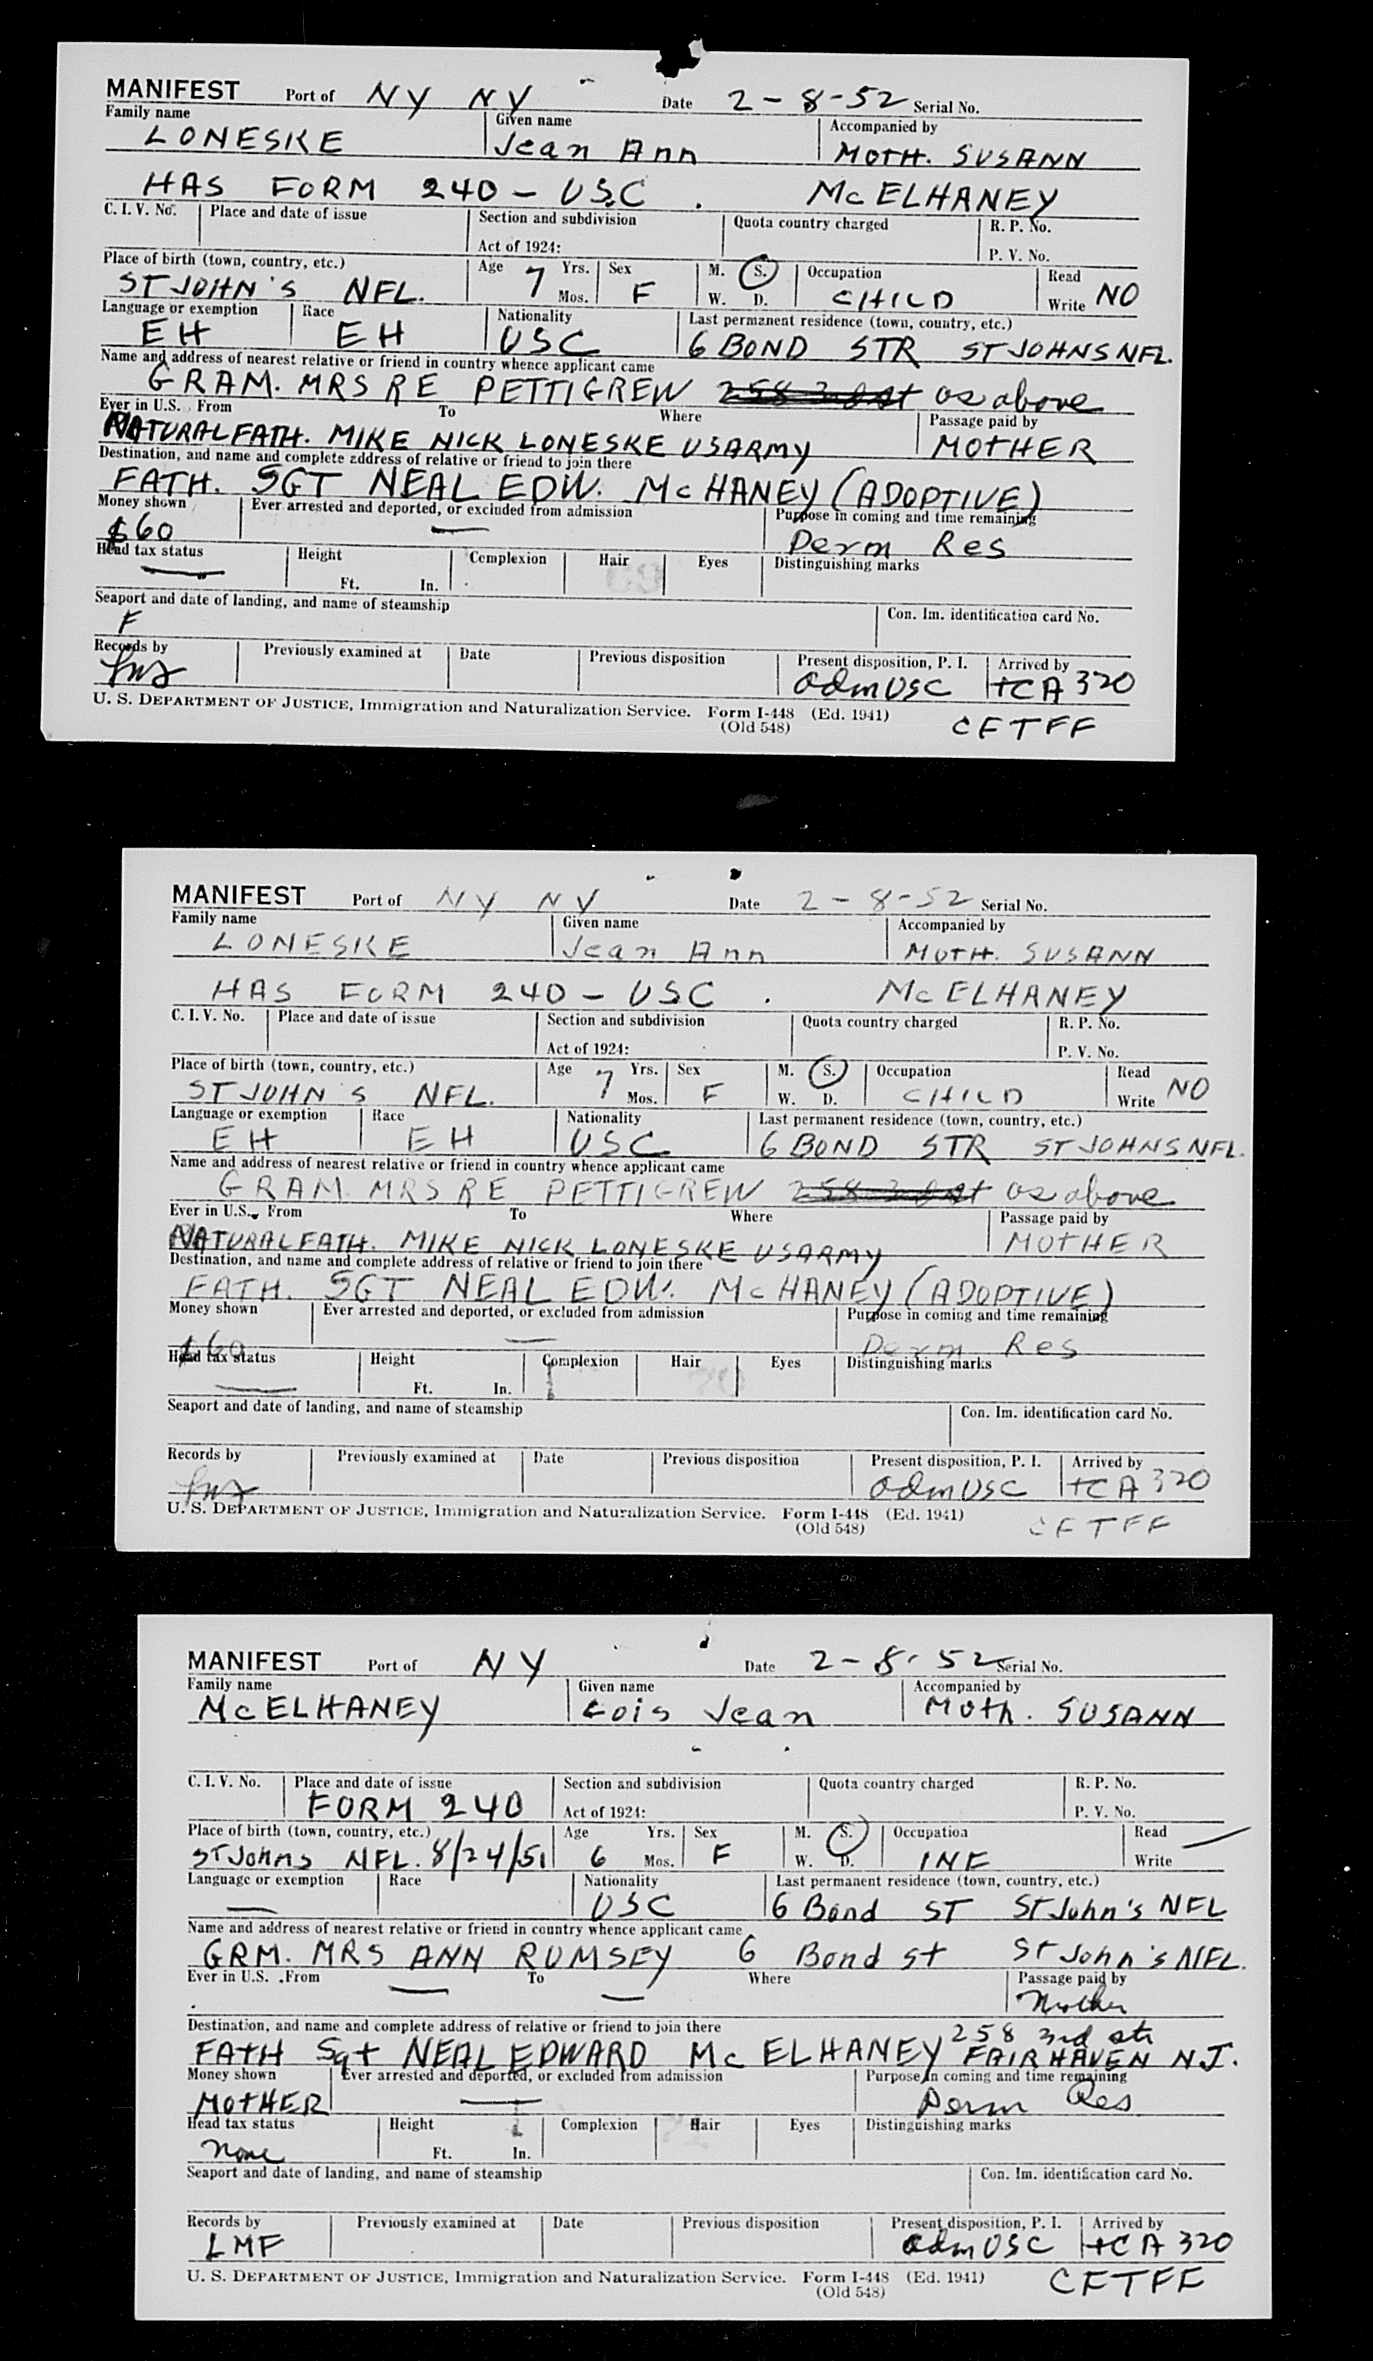 MANIFEST Port of NY NY Date 2-8-52 Serial No.
Family name Given name Accompanied by
LONESKE Jean Ann MOTH. SUSANN
HAS FORM 240 - USC. McELHANEY
C. I. V. No. Place and date of issue Section and subdivision Quota country charged R. P. No.
Act of 1924: P. V. No.
Place of birth (town, country, etc.) Age 7 Yrs. Sex M. S. Occupation Read
ST JOHN'S NFL. Mos. F W. D. CHILD Write NO
Language or exemption Race Nationality Last permanent residence (town, country, etc.)
EH EH USC 6 BOND STR ST JOHNS NFL.
Name and address of nearest relative or friend in country whence applicant came
GRAM. MRS RE PETTIGREW 258 3rd st as above
Ever in U.S. From To Where Passage paid by
NATURAL FATH. MIKE NICK LONESKE USARMY MOTHER
Destination, and name and complete address of relative or friend to join there
FATH. SGT NEAL EDW. McHANEY (ADOPTIVE)
Money shown Ever arrested and deported, or excluded from admission Purpose in coming and time remaining
$60 — Perm Res
Head tax status Height Complexion Hair Eyes Distinguishing marks
— Ft. In.
Seaport and date of landing, and name of steamship Con. Im. identification card No.
F
Records by Previously examined at Date Previous disposition Present disposition, P. I. Arrived by
adm USC TCA 320
U. S. DEPARTMENT OF JUSTICE, Immigration and Naturalization Service. Form I-448 (Ed. 1941)
(Old 548) CFTFF
MANIFEST Port of NY NY Date 2-8-52 Serial No.
Family name Given name Accompanied by
LONESKE Jean Ann MOTH. SUSANN
HAS FORM 240 - USC. McELHANEY
C. I. V. No. Place and date of issue Section and subdivision Quota country charged R. P. No.
Act of 1924: P. V. No.
Place of birth (town, country, etc.) Age 7 Yrs. Sex M. S. Occupation Read
ST JOHN'S NFL. Mos. F W. D. CHILD Write NO
Language or exemption Race Nationality Last permanent residence (town, country, etc.)
EH EH USC 6 BOND STR ST JOHNS NFL.
Name and address of nearest relative or friend in country whence applicant came
GRAM. MRS RE PETTIGREW 258 3rd st as above
Ever in U.S. From To Where Passage paid by
NATURAL FATH. MIKE NICK LONESKE USARMY MOTHER
Destination, and name and complete address of relative or friend to join there
FATH. SGT NEAL EDW. McHANEY (ADOPTIVE)
Money shown Ever arrested and deported, or excluded from admission Purpose in coming and time remaining
$60 — Perm Res
Head tax status Height Complexion Hair Eyes Distinguishing marks
— Ft. In.
Seaport and date of landing, and name of steamship Con. Im. identification card No.
Records by Previously examined at Date Previous disposition Present disposition, P. I. Arrived by
adm USC TCA 320
U. S. DEPARTMENT OF JUSTICE, Immigration and Naturalization Service. Form I-448 (Ed. 1941)
(Old 548) CFTFF
MANIFEST Port of NY Date 2-8-52 Serial No.
Family name Given name Accompanied by
McELHANEY Lois Jean Moth. SUSANN
C. I. V. No. Place and date of issue Section and subdivision Quota country charged R. P. No.
FORM 240 Act of 1924: P. V. No.
Place of birth (town, country, etc.) Age Yrs. Sex M. S. Occupation Read —
ST Johns NFL. 8/24/51 6 Mos. F W. D. INF Write
Language or exemption Race Nationality Last permanent residence (town, country, etc.)
— USC 6 Bond ST St John's NFL
Name and address of nearest relative or friend in country whence applicant came
GRM. MRS ANN RUMSEY 6 Bond st St John's NFL.
Ever in U.S. From — To — Where Passage paid by
Mother
Destination, and name and complete address of relative or friend to join there 258 3rd str
FATH Sgt NEAL EDWARD McELHANEY FAIR HAVEN N.J.
Money shown Ever arrested and deported, or excluded from admission Purpose in coming and time remaining
MOTHER — Perm Res
Head tax status Height Complexion Hair Eyes Distinguishing marks
None Ft. In.
Seaport and date of landing, and name of steamship Con. Im. identification card No.
Records by Previously examined at Date Previous disposition Present disposition, P. I. Arrived by
LMF adm USC TCA 320
U. S. DEPARTMENT OF JUSTICE, Immigration and Naturalization Service. Form I-448 (Ed. 1941)
(Old 548) CFTFF